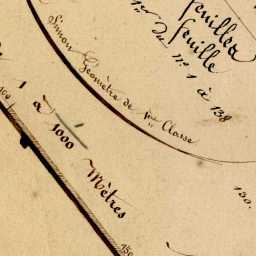 feuille
1er du n° 1 à 138
Simon Géomètre de 1ère Classe
1 à 1000 Mètres
100
150
130.